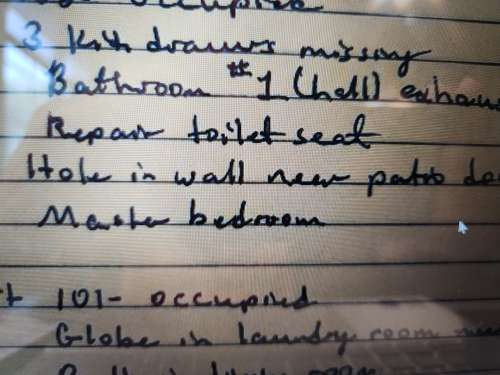 occupied
3 Kith drawrs missing
Bathroom #1 (hall) exhaus
Repair toilet seat
Hole in wall near patio do
Master bedroom
101- occupied
Globe in laundry room
room